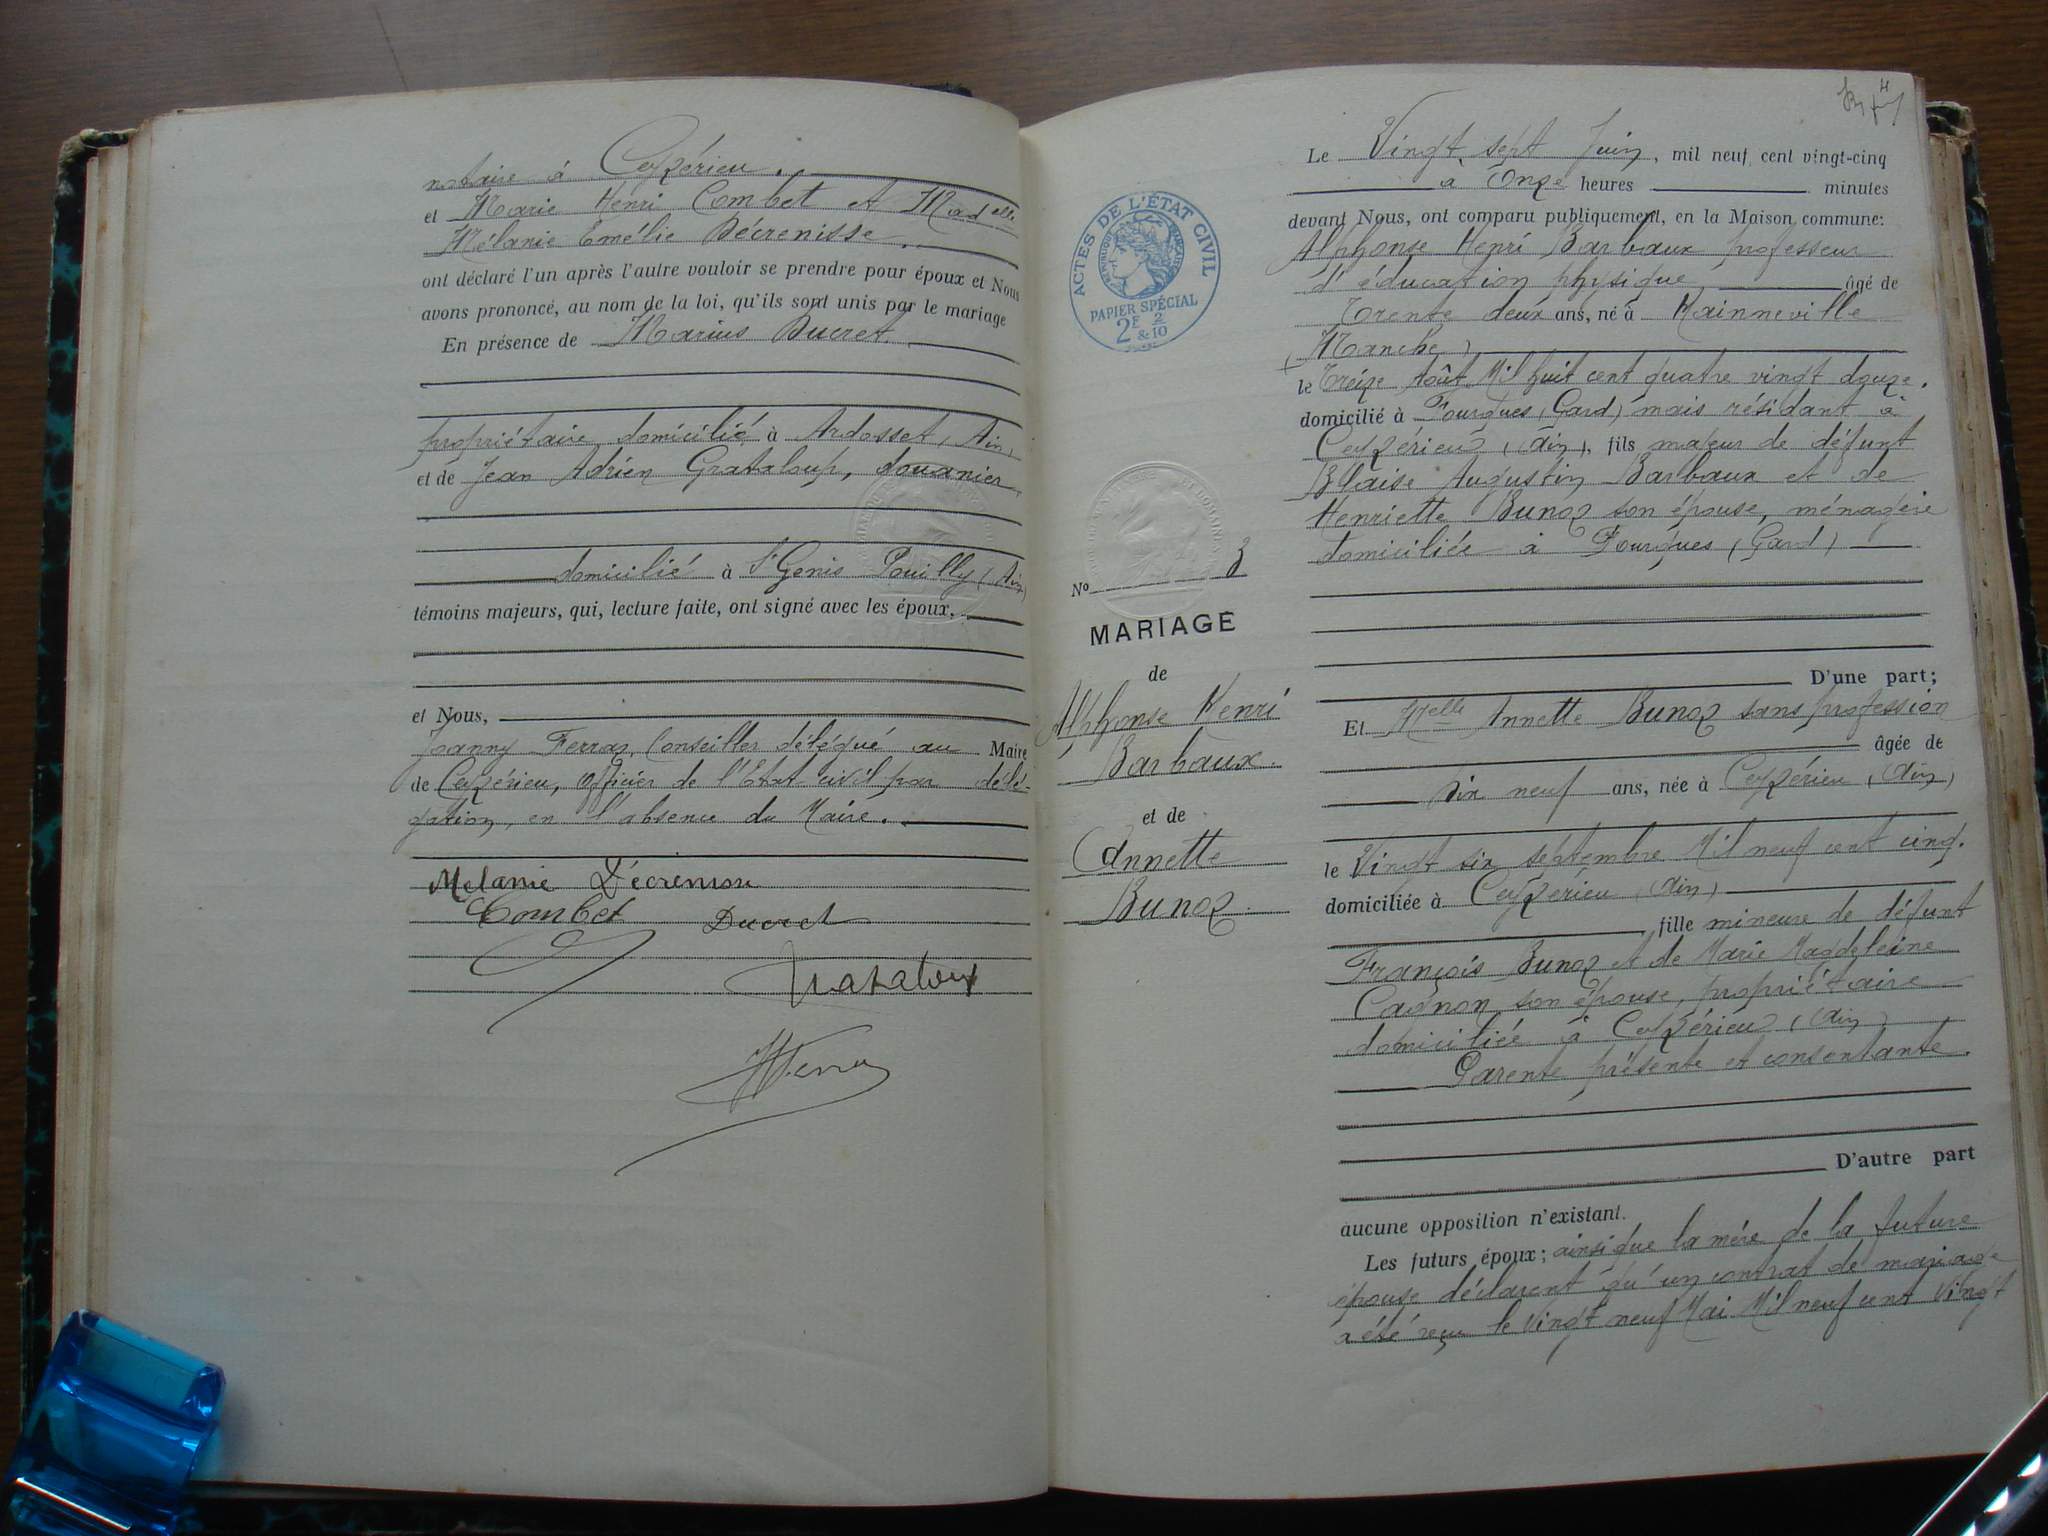 notaire à Ceyzérieu.
et Marie Henri Combet et Madelle
Mélanie Emélie Décrenisse.
ont déclaré l'un après l'autre vouloir se prendre pour époux et Nous
avons prononcé, au nom de la loi, qu'ils sont unis par le mariage
En présence de Marius Ducret.
propriétaire domicilié à Ardosset (Ain)
et de Jean Adrien Grataloup, douanier
domicilié à St Genis Pouilly (Ain)
témoins majeurs, qui, lecture faite, ont signé avec les époux.
et Nous,
Joanny Ferraz, Conseiller délégué au Maire
de Ceyzérieu, officier de l'Etat civil par délé-
gation, en l'absence du Maire.
Melanie Décrenisse
Combet Ducret
Grataloup
4
ACTES DE L'ÉTAT CIVIL
RÉPUBLIQUE FRANÇAISE
PAPIER SPÉCIAL
2F & 2/10
No 3
MARIAGE
de
Alphonse Henri
Barbaux.
et de
Annette
Bunoz.
Le Vingt sept Juin, mil neuf cent vingt-cinq
à Onze heures minutes
devant Nous, ont comparu publiquement, en la Maison commune:
Alphonse Henri Barbaux professeur
d'éducation physique âgé de
Trente deux ans, né à Hainneville
(Manche)
le Treize Août Mil huit cent quatre vingt douze.
domicilié à Fourques (Gard) mais résidant à
Ceyzérieu (Ain), fils majeur de défunt
Blaise Augustin Barbaux et de
Henriette Bunoz son épouse, ménagère
domiciliée à Fourques (Gard)
D'une part;
Et Melle Annette Bunoz sans profession
âgée de
Dix neuf ans, née à Ceyzérieu (Ain)
le Vingt six septembre Mil neuf cent cinq.
domiciliée à Ceyzérieu (Ain)
fille mineure de défunt
François Bunoz et de Marie Magdeleine
Cagnon son épouse, propriétaire
domiciliée à Ceyzérieu (Ain)
Parente présente et consentante.
D'autre part
aucune opposition n'existant.
Les futurs époux; ainsi que la mère de la future
épouse déclarent qu'un contrat de mariage
a été reçu le Vingt neuf Mai Mil neuf cent Vingt